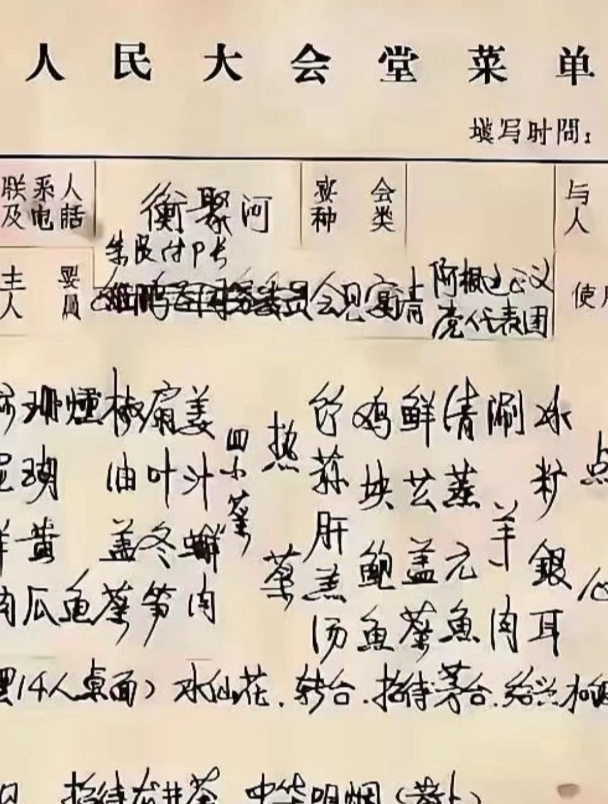 人民大会堂菜单
填写时間：
联系人及电话
衡聚河
宴会种类
与
人
主要人員
朱良付P长
会见宴请
阿根廷议党代表团
使
肉
珊瑚黄瓜
燻鱼
椒油盖菜
扇叶冬笋
姜汁蟹肉
四小菜
热菜
竹荪肝羔汤
鸡块鲍鱼
鲜芸盖菜
清蒸元鱼
涮羊肉
冰籽銀耳
点心
14人桌面）水仙花．转台．招待茅台．绍兴
招待龙井茶 中华明烟（